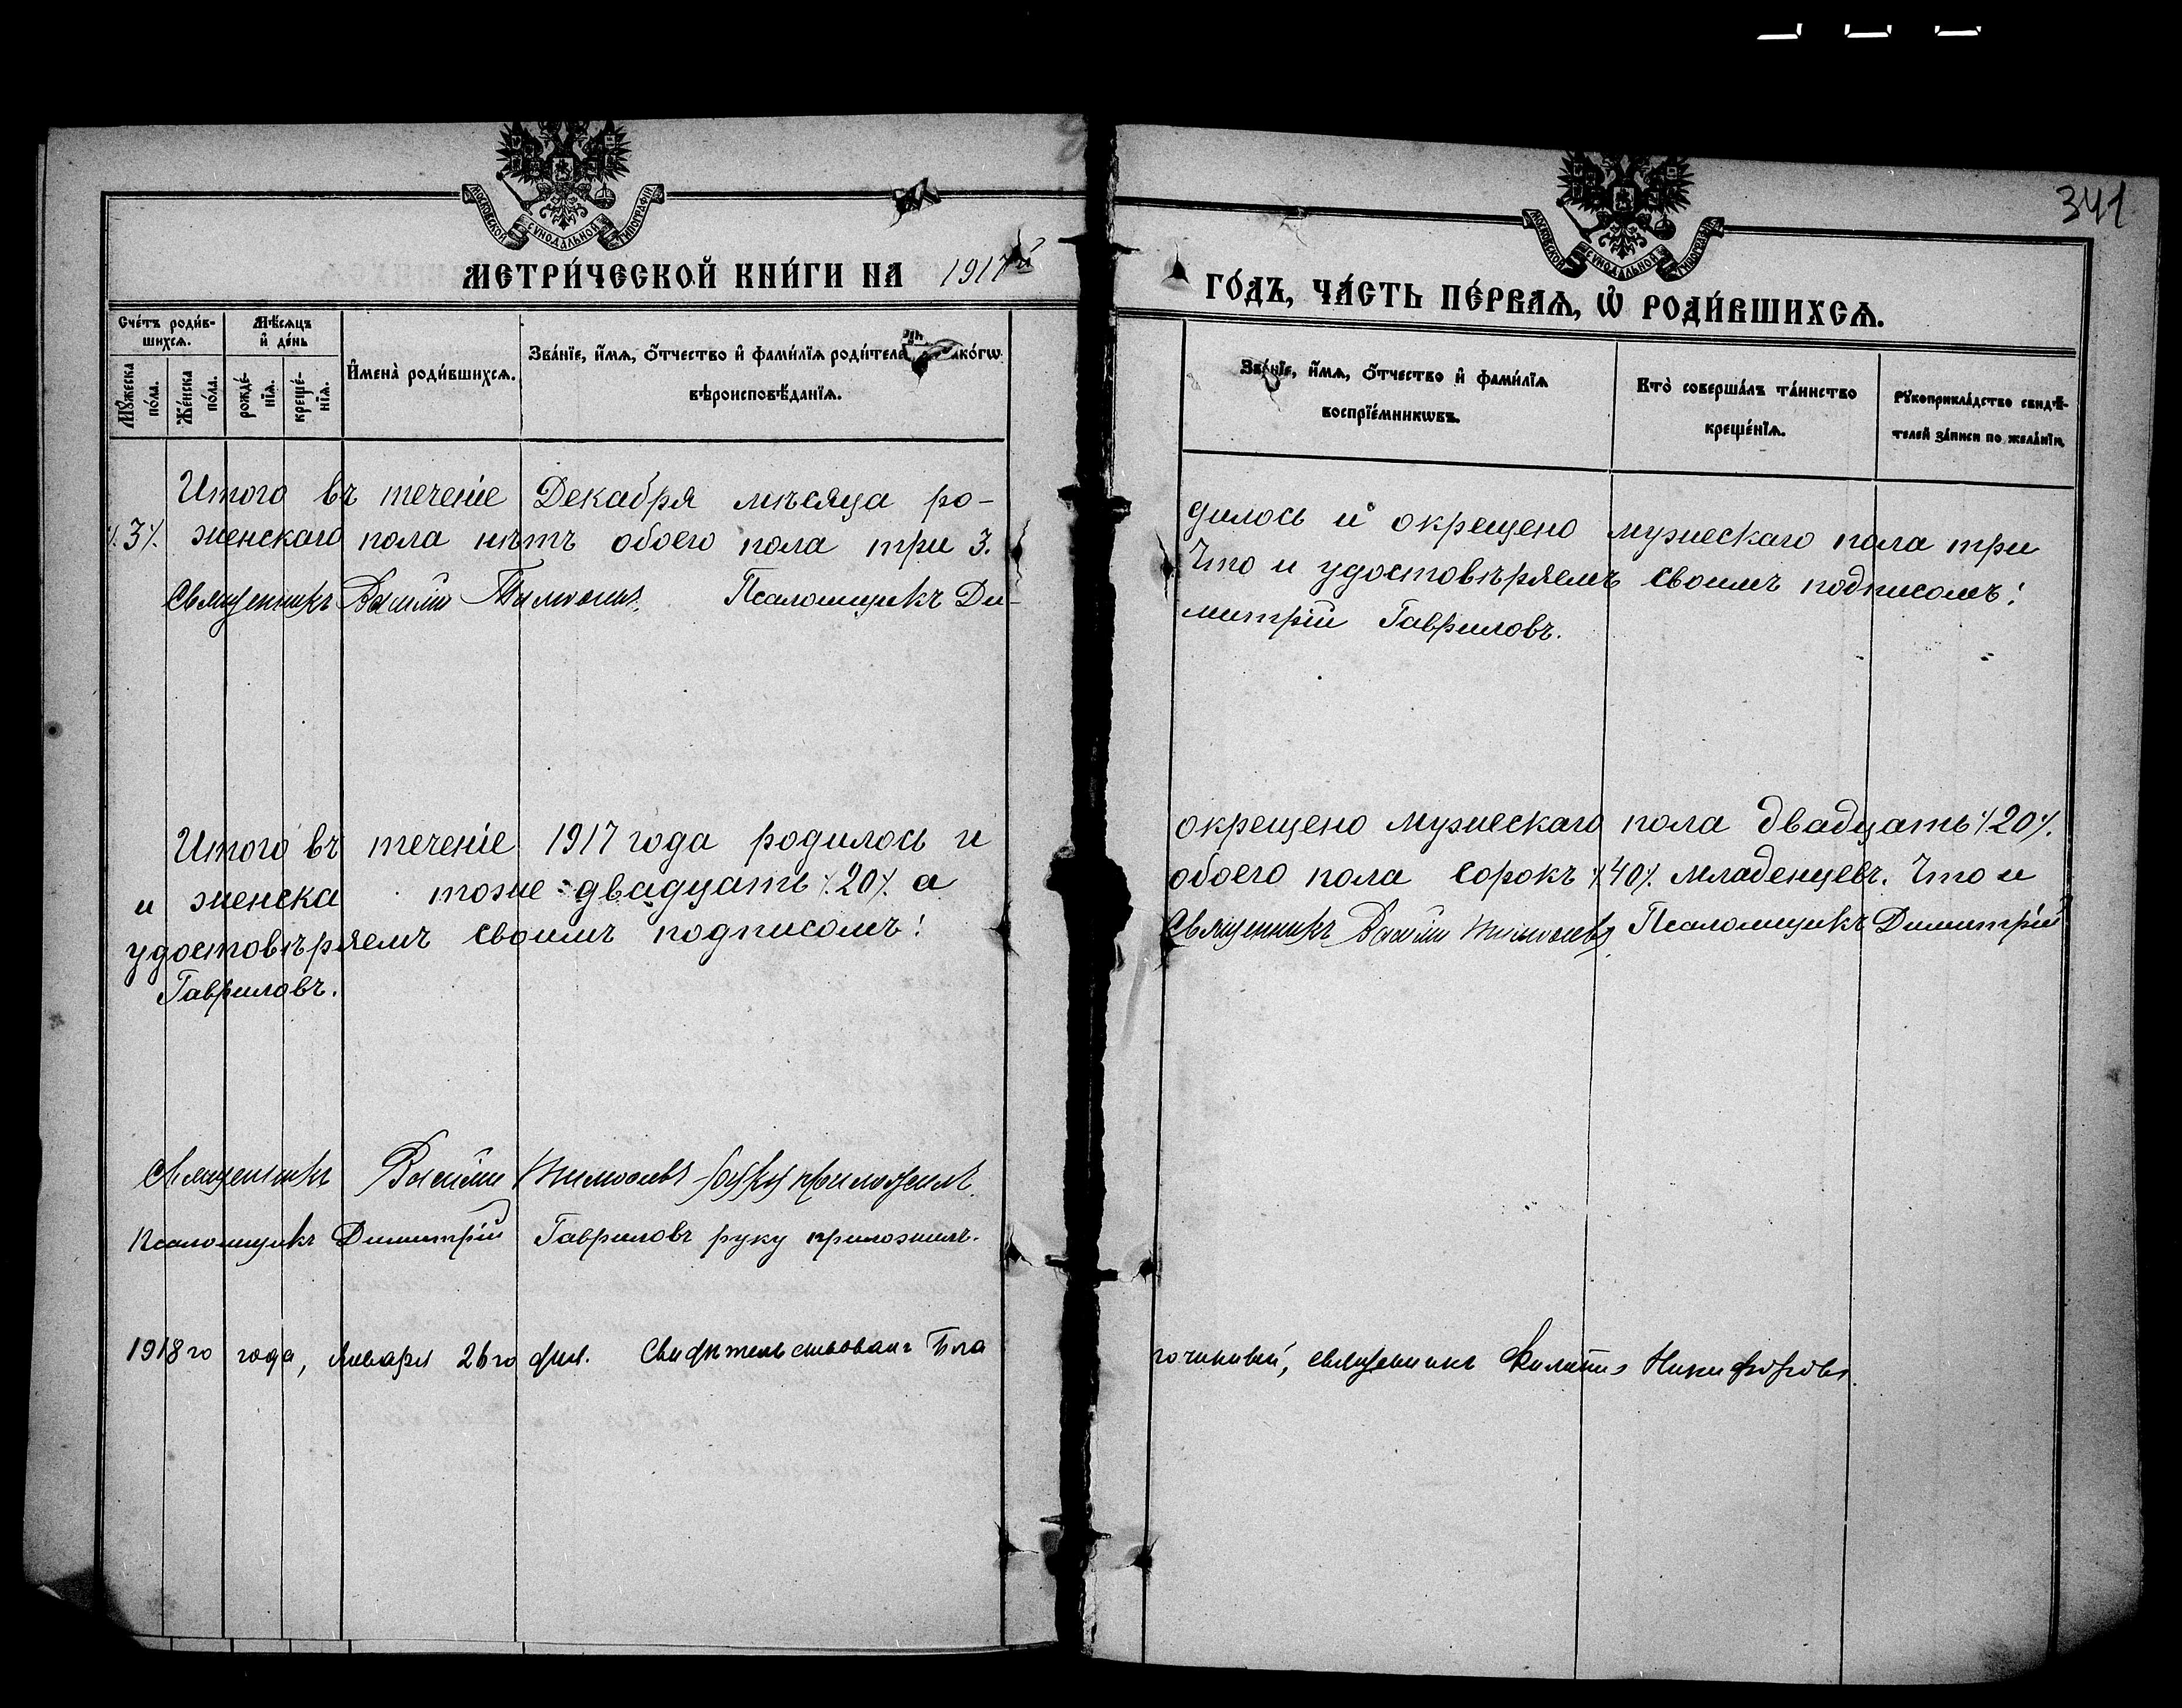 341
МОСКОВСКОЙ СѴНОДАЛЬНОЙ ТИПОГРАФІИ
МОСКОВСКОЙ СѴНОДАЛЬНОЙ ТИПОГРАФІИ
МЕТРИ́ЧЕСКОЙ КНИ́ГИ НА 1917й
ГО́ДЪ, ЧА́СТЬ ПЕ́РВАѦ, Ѡ҆ РОДИ́ВШИХСѦ.
Сче́тъ роди́в-
шихсѧ.
Мꙋ́жеска
по́ла.
Же́нска
по́ла.
Мѣ́сѧцъ
и҆ де́нь
рожде́-
нїѧ.
креще́-
нїѧ.
И҆мена̀ роди́вшихсѧ.
Зва́нїе, и҆́мѧ, ѻ҆́тчество и҆ фами́лїѧ роди́теле
вѣроисповѣ́данїѧ.
Зва́нїе, и҆́мѧ, ѻ҆́тчество и҆ фами́лїѧ
воспрїе́мникѡвъ.
Кто̀ соверша́лъ та́инство
креще́нїѧ.
Рꙋкоприкла́дство свидѣ́-
телей за́писи по жела́нїю
Итого въ теченіе Декабря мѣсяца ро-
дилось и окрещено мужескаго пола три
٪3٪. женскаго пола нѣтъ обоего пола три 3.
Что и удостовѣряемъ своимъ подписомъ:
Священникъ Василій Тимоѳеевъ. Псаломщикъ Ди-
митрій Гавриловъ.
Итого въ теченіе 1917 года родилось и
окрещено мужескаго пола двадцать ٪20٪.
и женска тоже двадцать ٪20٪. а
обоего пола сорокъ ٪40٪. младенцевъ. Что и
удостовѣряемъ своимъ подписомъ:
Священникъ Василій Тимоѳеевъ. Псаломщикъ Димитрій
Гавриловъ.
Священникъ Василій Тимоѳеевъ руку приложилъ.
Псаломщикъ Димитрій Гавриловъ руку приложилъ.
1918го года, Января 26го дня. Свидѣтельствовалъ Бла
гочинный, священникъ Филиппъ Никифоровъ.